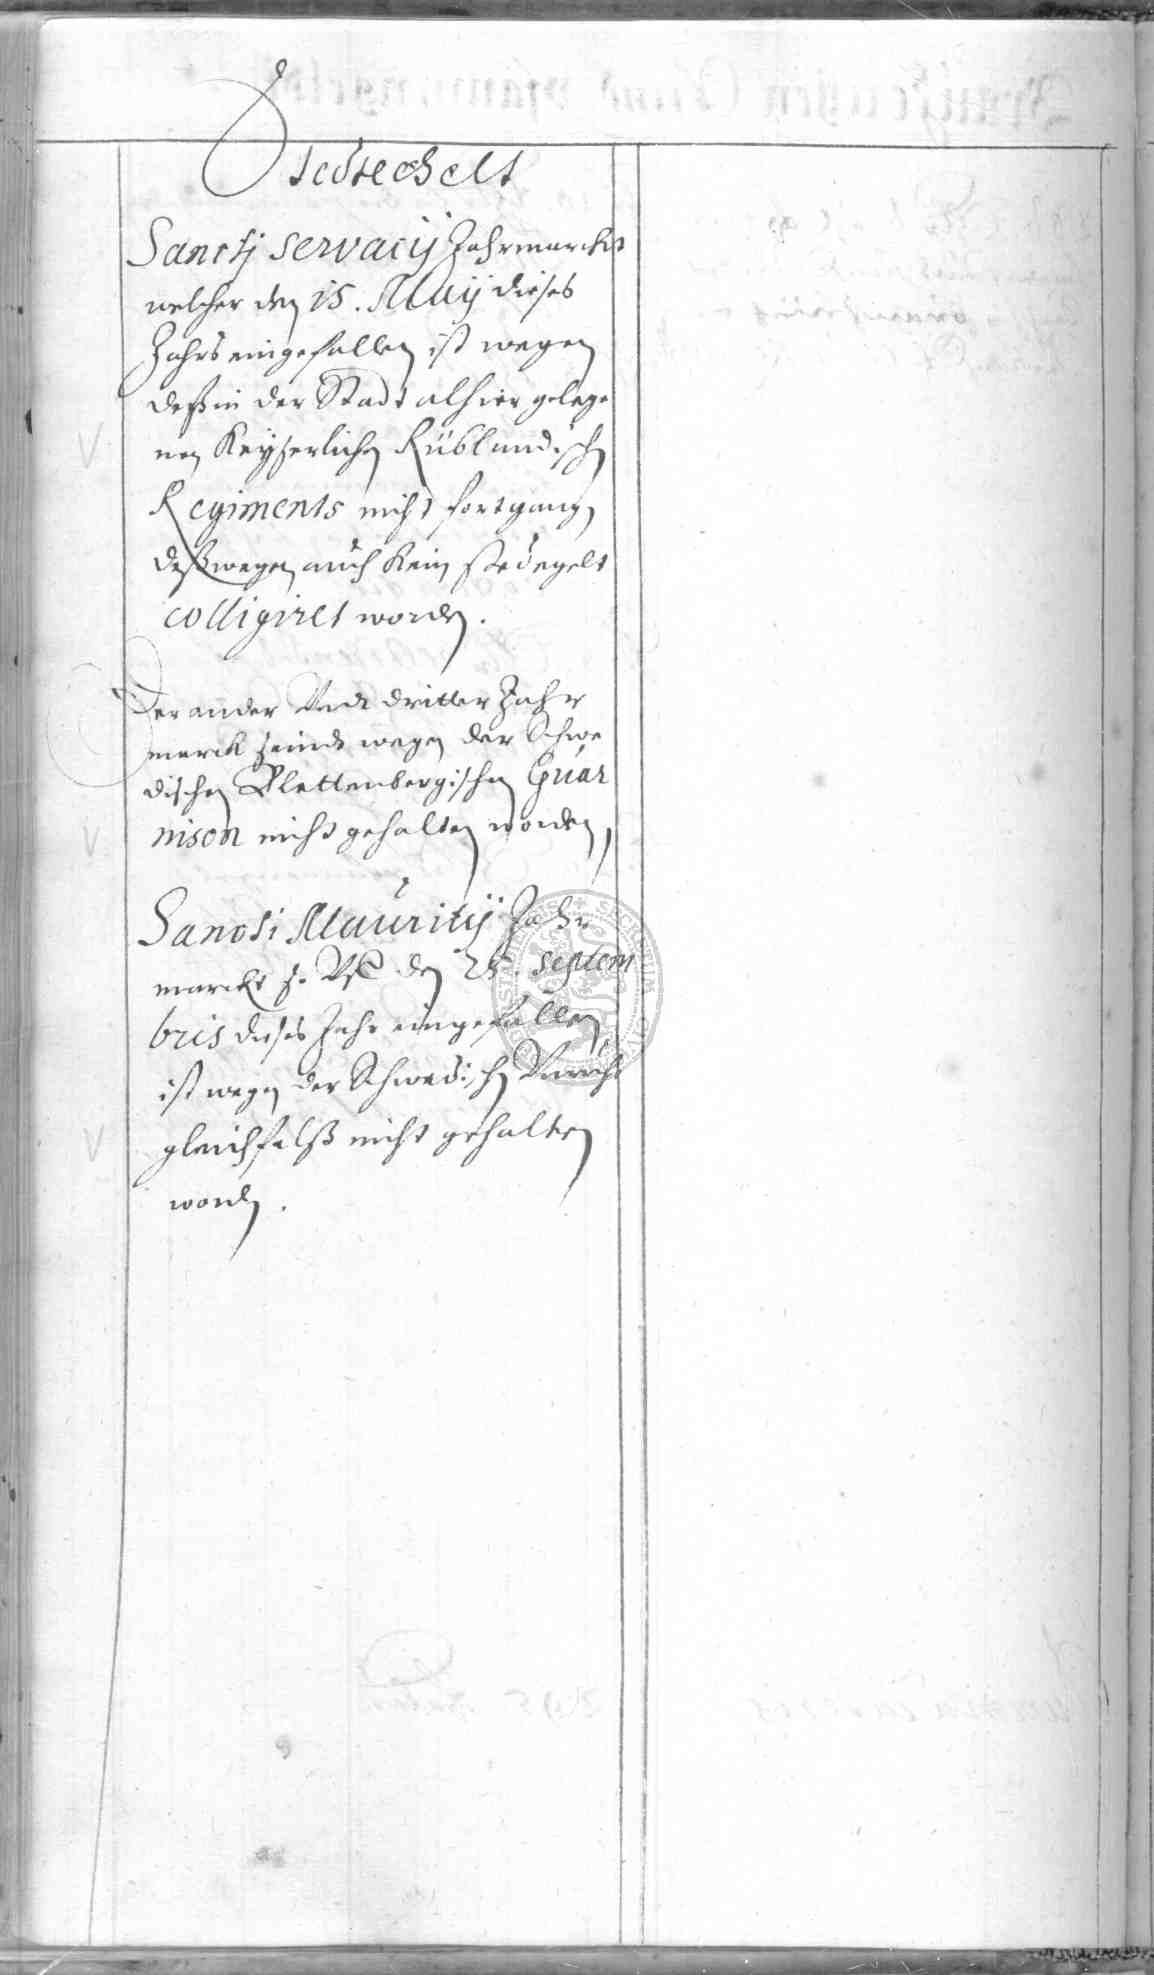 Stedtegelt
Sanctj Servacij Jahrmarckt
welcher den 15. Maij dieses
Jahrs eingefallen ist wegen
deß in der Stadt alhier gelege
nen Keyserlichen Rübländischen
Regiments nicht fortgangen,
deßwegen auch kein stedegelt
colligiret worden.
Der ander Vndt dritter Jahr
marck seindt wegen der Schwe
dischen Plettenbergischen Guar
nison nicht gehalten worden,
Sancti Mauritij Jahr
marckt so den septem
bris dieses Jahr eingefallen
ist wegen der Schwedischen
gleichfalß nicht gehalten
worden.